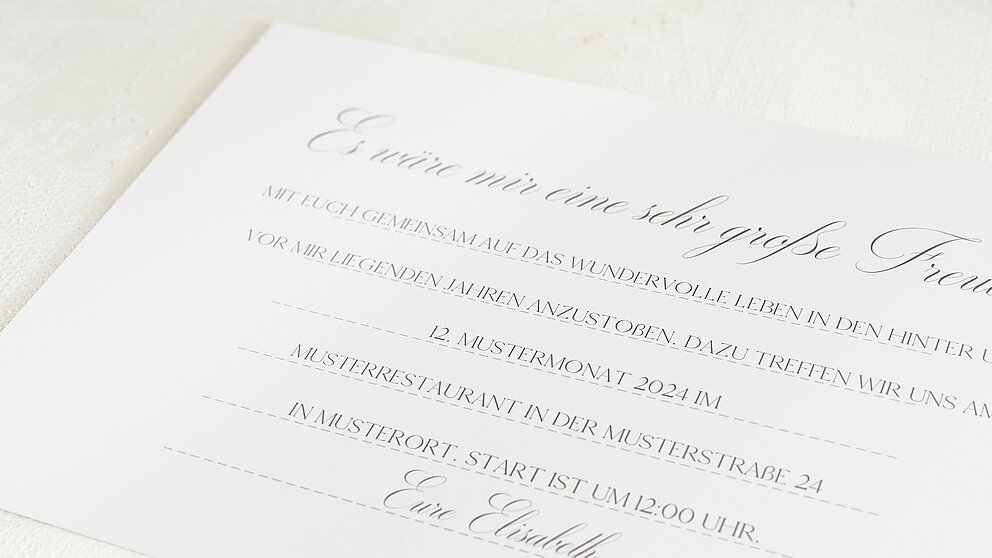 Es wäre mir eine sehr große
MIT EUCH GEMEINSAM AUF DAS WUNDERVOLLE LEBEN IN DEN HINTER
VOR MIR LIEGENDEN JAHREN ANZUSTOẞEN. DAZU TREFFEN WIR UNS AM
12. MUSTERMONAT 2024 IM
MUSTERRESTAURANT IN DER MUSTERSTRAẞE 24
IN MUSTERORT. START IST UM 12:00 UHR.
Eure Elisabeth